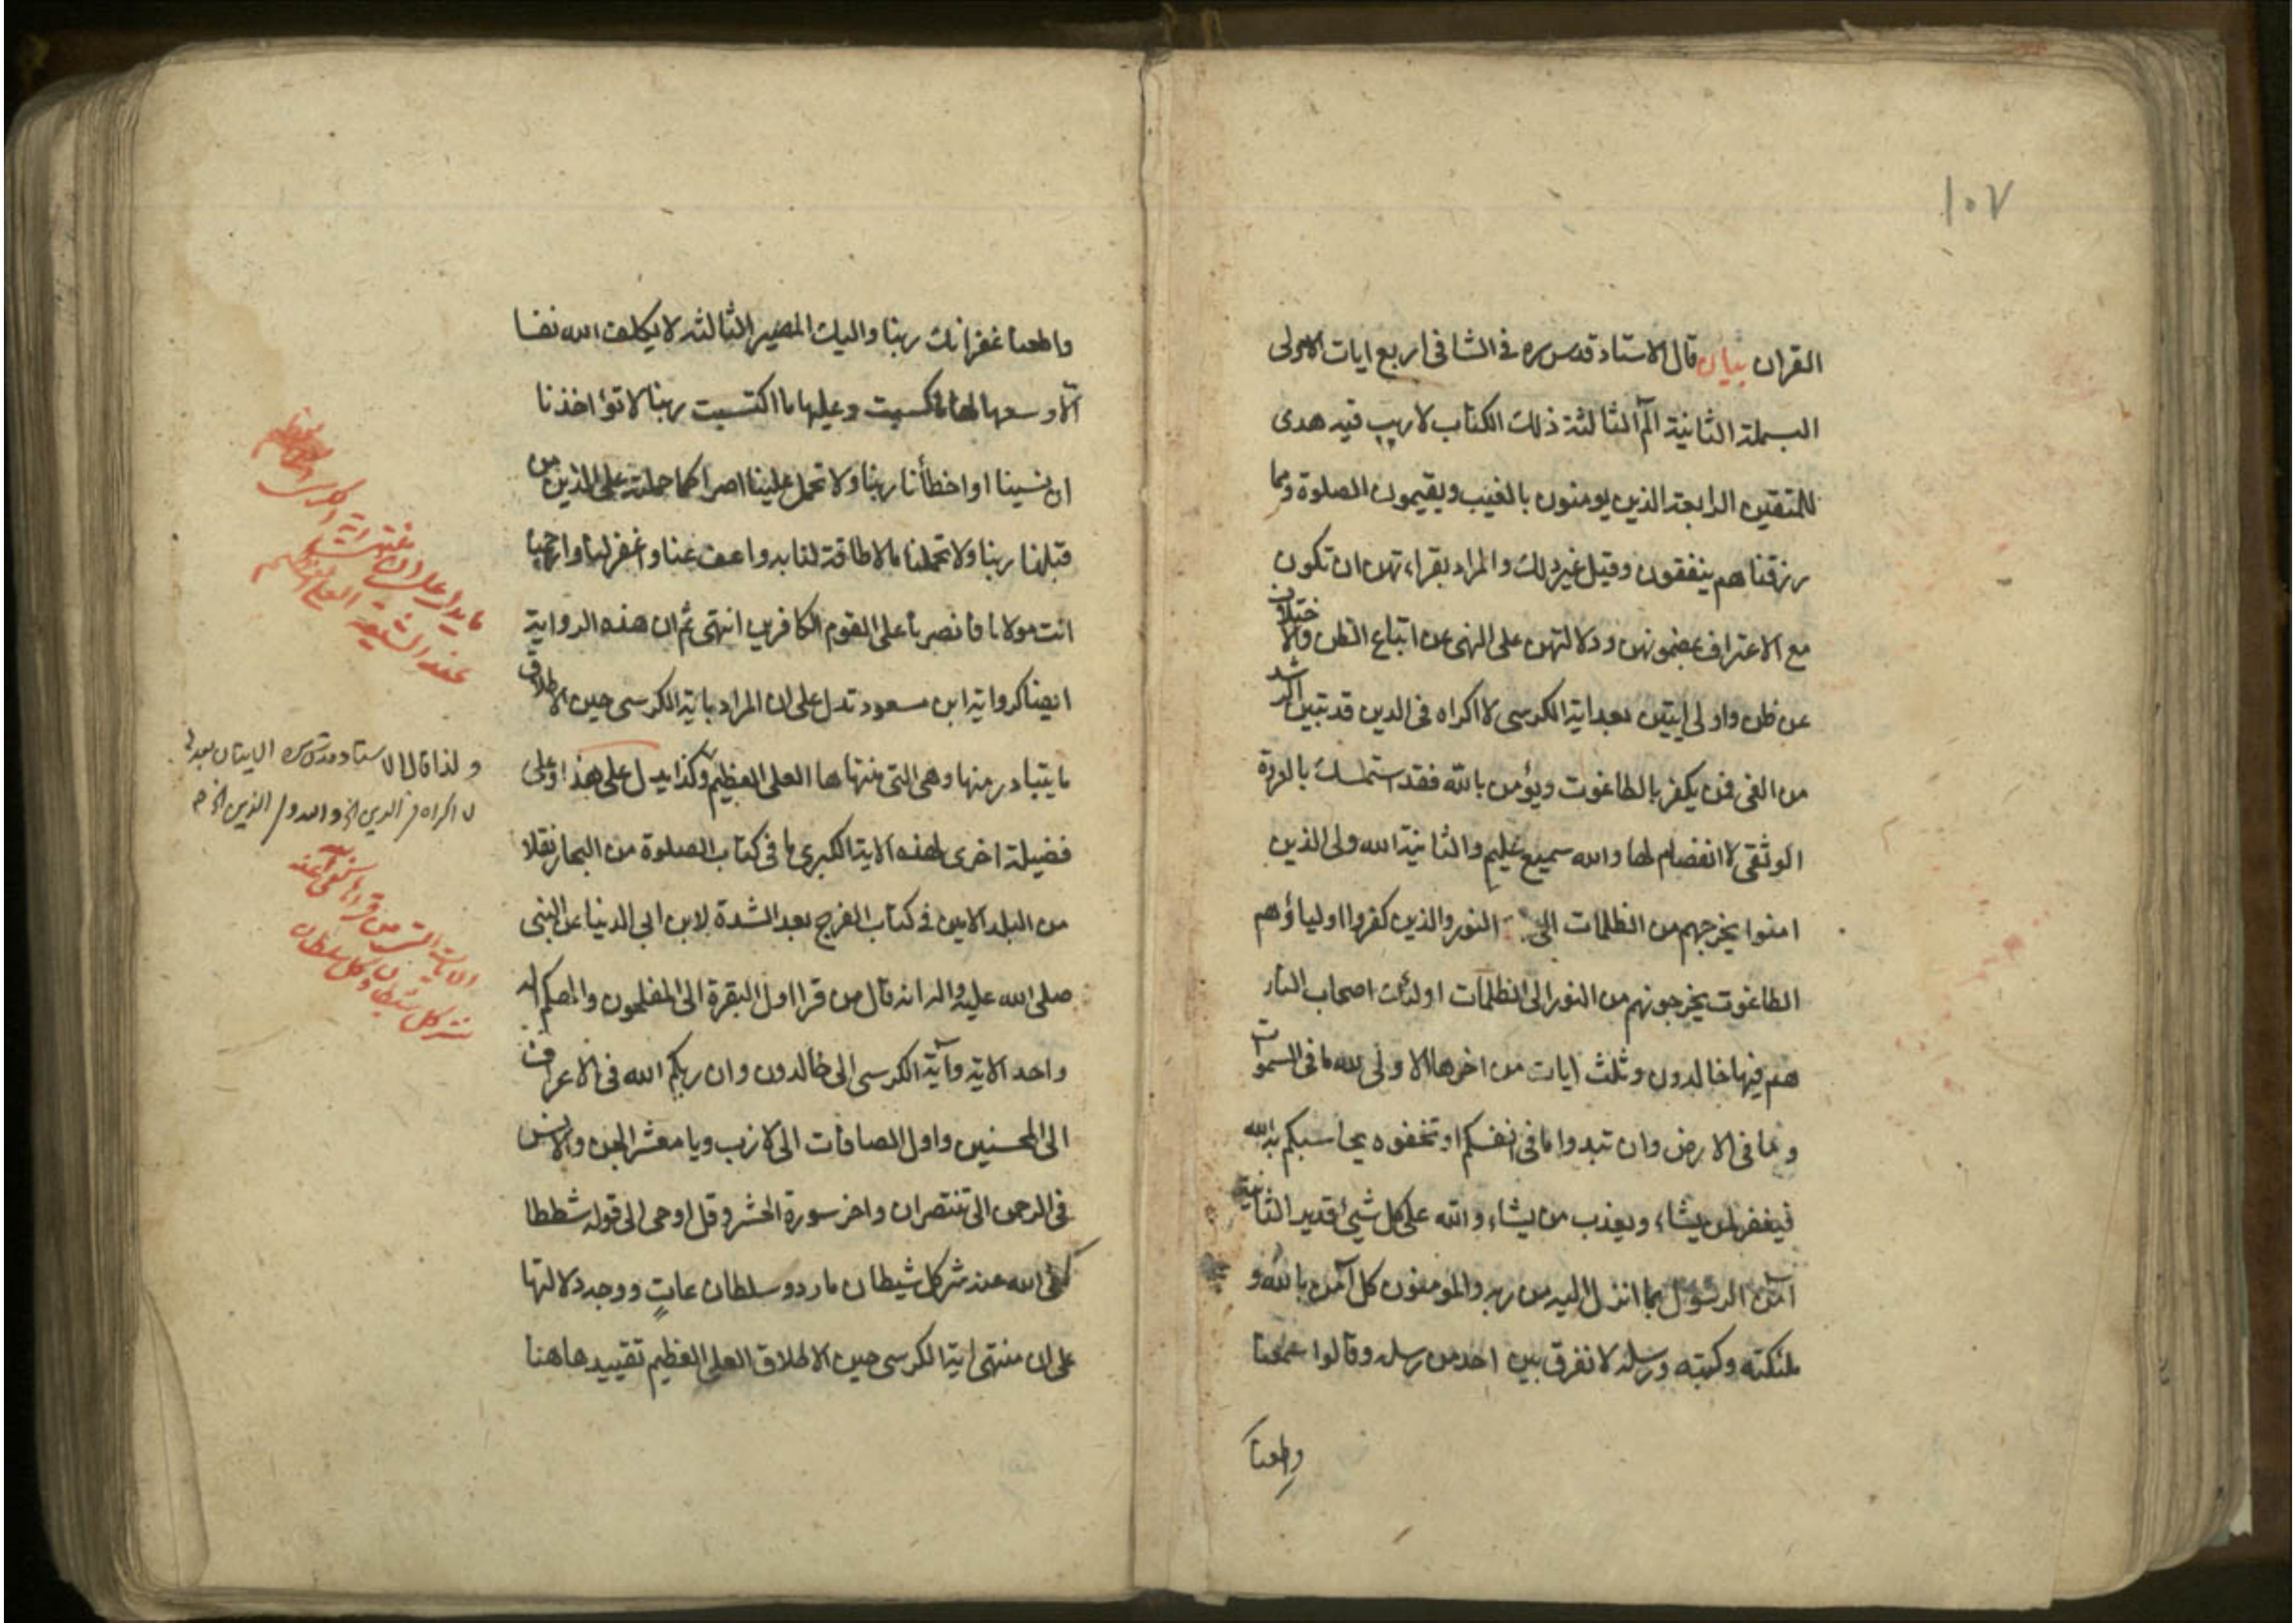 ١٠٧
القران بيان قال الاستاد قدس سره فى الشافى اربع ايات الاولى
البسملة الثانية الٓمٓ الثالثة ذلك الكتاب لا ريب فيه هدى
للمتقين الرابعة الذين يومنون بالغيب ويقيمون الصلوة ومما
رزقناهم ينفقون وقيل غير ذلك والمراد بقراءتهن ان تكون
مع الاعتراف بمضمونهن ودلالتهن على النهى عن اتباع الظن والاختلاف
عن ظن واولى ايتين بعد اية الكرسى لا اكراه فى الدين قد تبين الرشد
من الغى فمن يكفر بالطاغوت ويؤمن بالله فقد استمسك بالعروة
الوثقى لا انفصام لها والله سميع عليم والثانية الله ولى الذين
امنوا يخرجهم من الظلمات الى النور والذين كفروا اولياؤهم
الطاغوت يخرجونهم من النور الى الظلمات اولئك اصحاب النار
هم فيها خالدون وثلث ايات من اخرها الاولى لله ما فى السموات
وما فى الارض وان تبدوا ما فى انفسكم او تخفوه يحاسبكم به الله
فيغفر لمن يشاء ويعذب من يشاء والله على كل شيئ قدير الثانية
آمن الرسول بما انزل اليه من ربه والمومنون كل آمن بالله و
ملئكته وكتبه ورسله لا نفرق بين احد من رسله وقالوا سمعنا
واطعنا
واطعنا غفرانك ربنا واليك المصير الثالثه لا يكلف الله نفسا
الّا وسعها لها ما كسبت وعليها ما اكتسبت ربنا لا تؤاخذنا
ان نسينا او اخطأنا ربنا ولا تحمل علينا اصرا كما حملته على الذين من
قبلنا ربنا ولا تحملنا ما لا طاقة لنا به واعف عنا واغفر لنا وارحمنا
انت مولانا فانصرنا على القوم الكافرين انتهى ثم ان هذه الرواية
ايضا كرواية ابن مسعود تدل على ان المراد باية الكرسى حين الاطلاق
ما يتبادر منها وهى التى منتهاها العلى العظيم وكذا يدل على هذا وعلى
فضيلة اخرى لهذه الاية الكبرى ما فى كتاب الصلوة من البحار نقلا
من البلد الامين فى كتاب الفرج بعد الشدة لابن ابى الدنيا عن النبى
صلى الله عليه واله انه قال من قرا اول البقرة الى المفلحون والهكم اله
واحد الاية وآية الكرسى الى خالدون وان ربكم الله فى الاعراف
الى المحسنين واول الصافات الى لازب ويا معشر الجن والانس
فى الرحمن الى تنتصران واخر سورة الحشر وقل اوحى الى قوله شططا
كفى الله عنه شر كل شيطان مارد وسلطان عات ووجه دلالتها
على ان منتهى اية الكرسى حين الاطلاق العلى العظيم تقييدها هنا
ما يدل على ان منتهى اية الكرسى
عند الشيعة العلى العظيم
ولذا قال الاستاد قدس سره الايتان بعدها
لا اكراه فى الدين الخ والله ولى الذين الخ
الايات التى من قراها كفى الله عنه
شر كل شيطان وكل سلطان